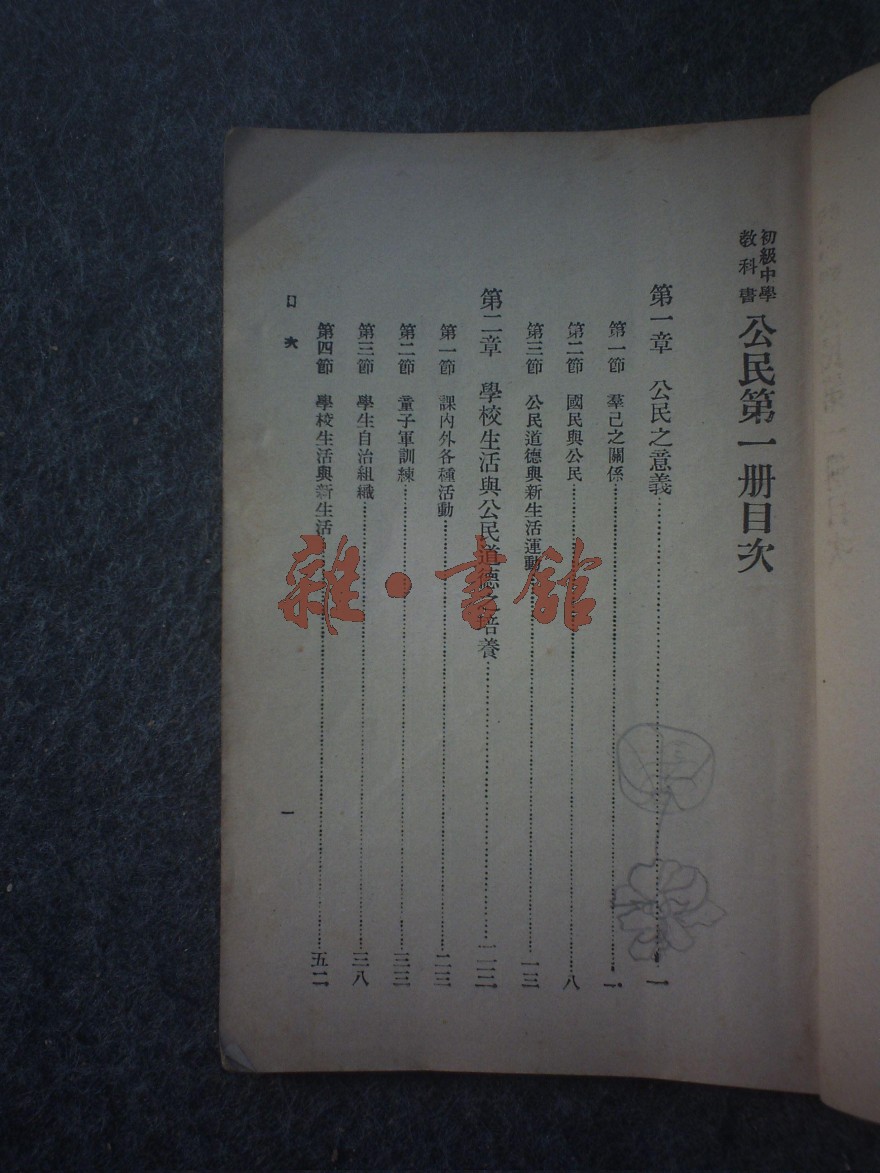 初級中學
教科書
公民第一册目次
第一章 公民之意義……一
第一節 羣己之關係……一
第二節 國民與公民……八
第三節 公民道德與新生活運動……一三
第二章 學校生活與公民道德之培養……二三
第一節 課內外各種活動……二三
第二節 童子軍訓練……三三
第三節 學生自治組織……三八
第四節 學校生活與新生活……五二
目次
一
雜·書館